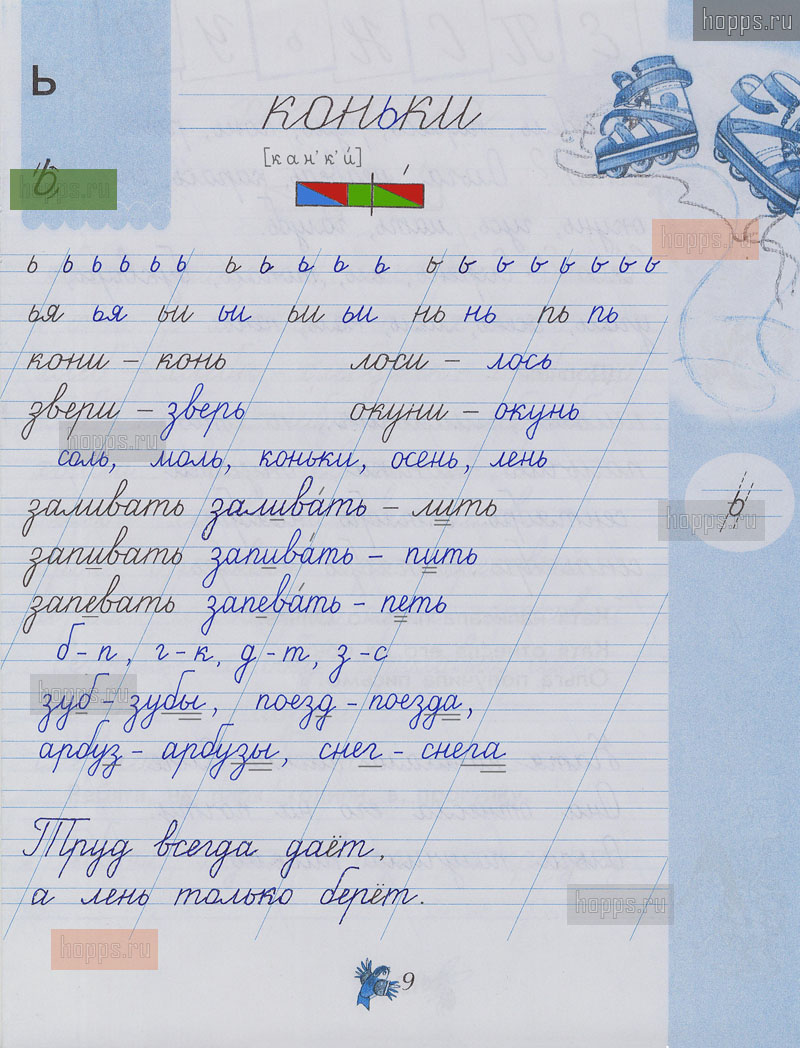 hopps.ru
ь
коньки
[кан'к'и́]
ь
hopps.ru
hopps.ru
ь ь ь ь ь ь ь ь ь ь ь ь ь ь ь ь ь ь ь
ья ья ьи ьи ьи ьи нь нь пь пь
кони – конь лоси – лось
звери – зверь окуни – окунь
hopps.ru
соль, моль, коньки, осень, лень
заливать залива́ть – лить
ь
hopps.ru
запивать запива́ть – пить
запевать запева́ть – петь
б – п, г – к, д – т, з – с
hopps.ru
зуб – зубы, поезд – поезда,
арбуз – арбузы, снег – снега
Труд всегда даёт,
а лень только берёт.
hopps.ru
hopps.ru
9